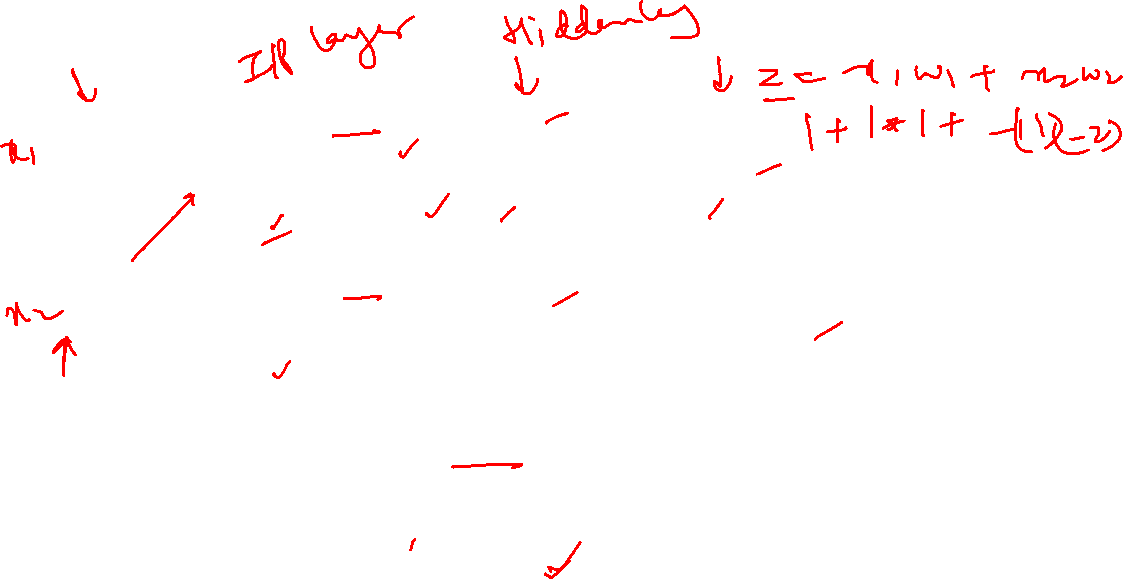 I/P layer
Hidden lay
z = x1w1 + x2w2
1 + 1*1 + -(1)(-2)
x1
x2